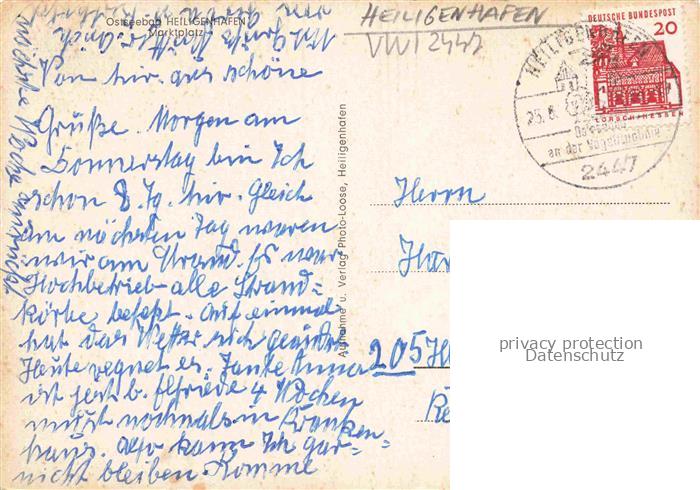 Ostseebad HEILIGENHAFEN
Marktplatz
HEILIGENHAFEN
VWI 2447
DEUTSCHE BUNDESPOST
20
LORSCH/HESSEN
HEILIGENHAFEN
25.8.
Ostseebad
an der Vogelfluglinie
2447
Von hir aus schöne
Grüße. Morgen am
Donnerstag bin Ich
schon 8 Tg. hir. Gleich
am nächsten Tag waren
wir am Strand. Es war
Hochbetrieb alle Strand=
körbe besetzt. Auf einmal
hat das Wetter sich geändert
Heute regnet es. Tante Anna
ist jetzt b. Elfriede 4 Wochen
muß nochmals in Kranken-
haus. Also kann Ich gar=
nicht bleiben. Komme
nächste Woche
Aufnahme u. Verlag Photo-Loose, Heiligenhafen
Herrn
205
privacy protection
Datenschutz